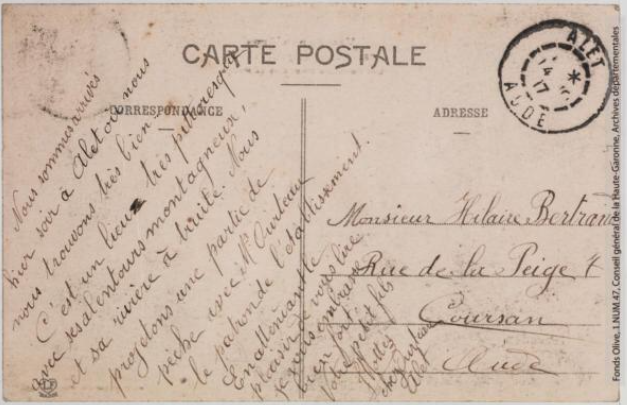 CARTE POSTALE
CORRESPONDANCE
ADRESSE
ALET
14
17
AUDE
Nous sommes arrivés
hier soir à Alet où nous
nous trouvons très bien
C'est un lieu très pittoresque
avec ses alentours montagneux,
et sa rivière à truite. Nous
projetons une partie de
pêche avec Mr
le patron de l'établissement.
En attendant le
plaisir de vous lire
je vous embrasse
bien fort
Votre petit fils
chez
Alet
Monsieur Hilaire Bertrand
Rue de la Peige 7
Coursan
Aude
Fonds Olive, 1 NUM 47, Conseil général de la Haute-Garonne, Archives départementales